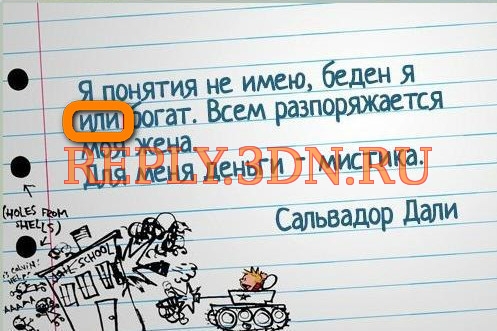 Я понятия не имею, беден я
или богат. Всем разпоряжается
моя жена.
REPLY.3DN.RU
Для меня деньги - мистика.
Сальвадор Дали
(HOLES FROM
SHELLS)
SCHOOL
HELP!
AAAAA